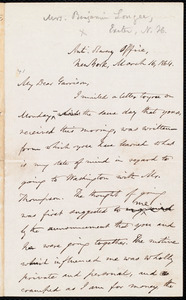 Mrs. Benjamin
Exeter, N. H.
Anti-Slavery Office,
New York, March 16, 1864.
My Dear Garrison,
I mailed a letter to you on
Monday, the same day that yours,
received this morning, was written
from which you have learned, ere this,
my state of mind in regard to
going to Washington with Mr.
Thompson. The thought of going
me
was first suggested to by
the announcement that you and
he were going together. The motive
which influenced me was wholly
private and personal, and
vanished as I am